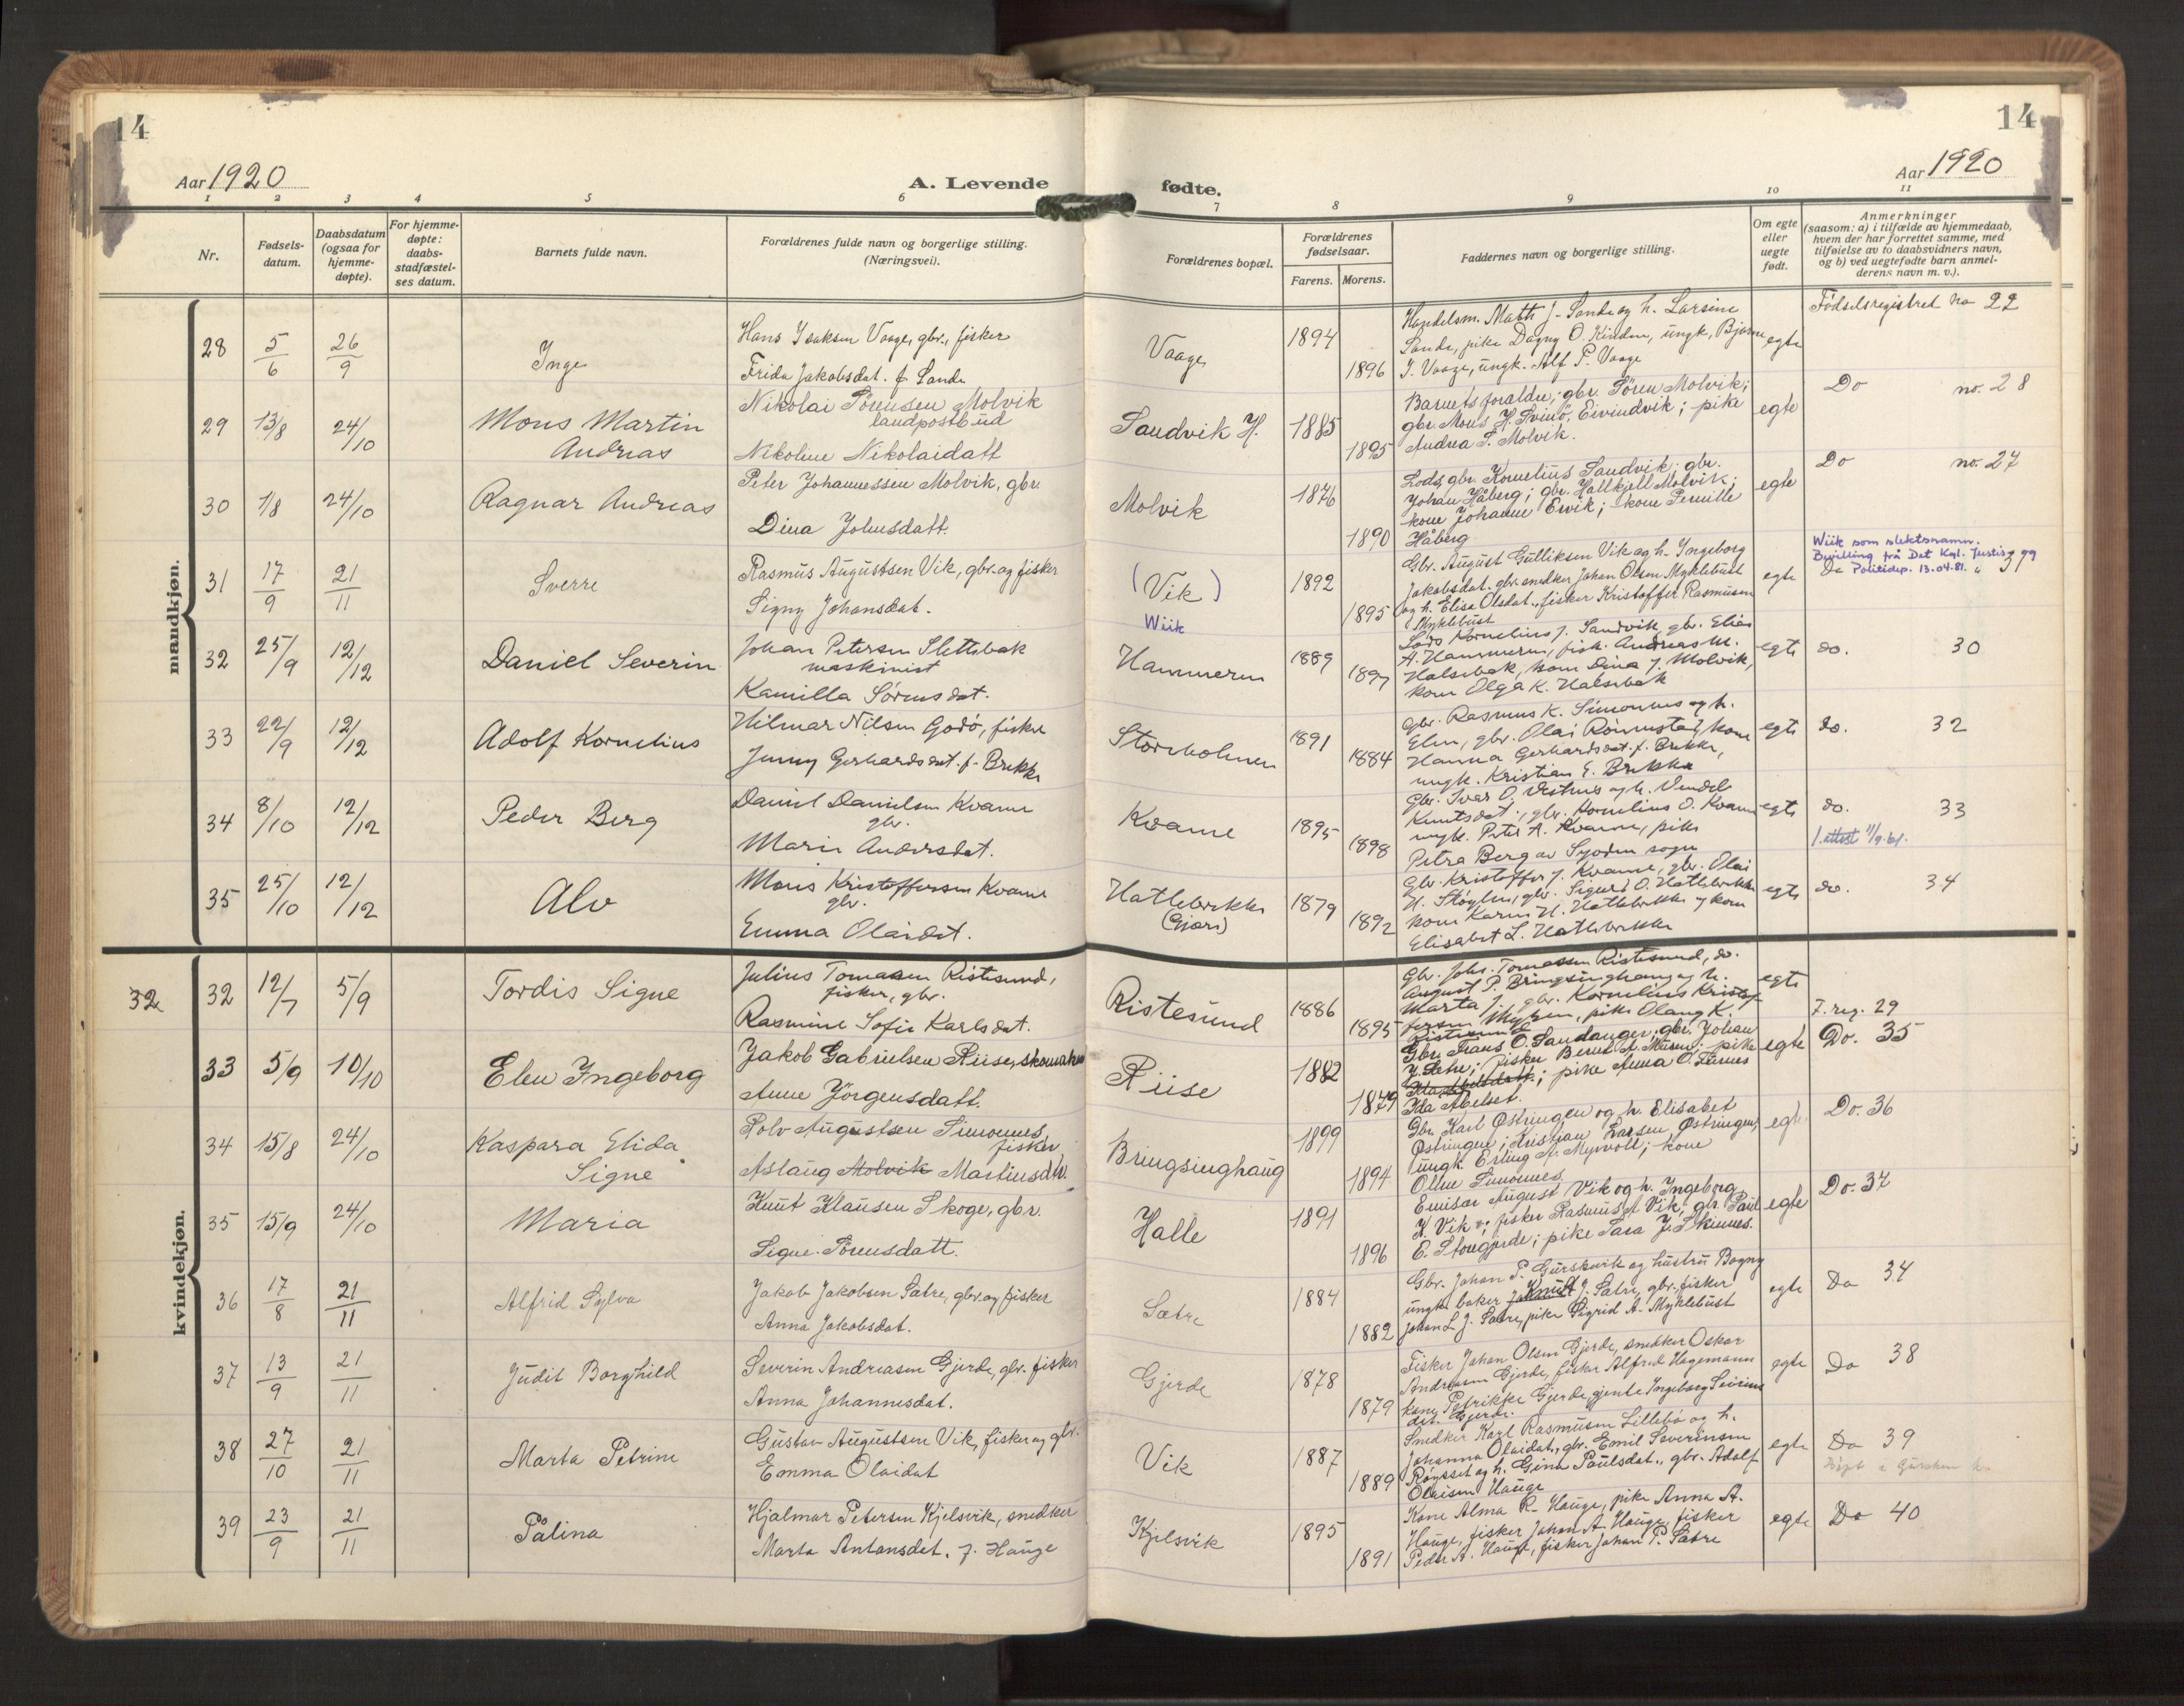 14
14
Aar 1920
A. Levende
fødte.
Aar 1920
1 2 3 4 5 6 7 8 9 10 11
Nr.
Fødsels-
datum.
Daabsdatum
(ogsaa for
hjemme-
døpte).
For hjemme-
døpte:
daabs-
stadfæstel-
ses datum.
Barnets fulde navn.
Forældrenes fulde navn og borgerlige stilling.
(Næringsvei).
Forældrenes bopæl.
Forældrenes
fødselsaar.
Farens. Morens.
Faddernes navn og borgerlige stilling.
Om egte
eller
uegte
født.
Anmerkninger
(saasom: a) i tilfælde av hjemmedaab,
hvem der har forrettet samme, med
tilføielse av to daabsvidners navn,
og b) ved uegtefødte barn anmel-
derens navn m. v.).
mandkjøn.
28
5/6
26/9
Inge
Hans Isaksen Vaage, gbr., fisker
Frida Jakobsdat. f. Sande
Vaage
1894
1896
Handelsm. Math J. Sande og h. Larsine
Sande, pike Dagny O. Kinden, ungk. Bjarne
I. Vaage, ungk. Alf P. Vaage
egte
Fødselsregistret no 22
29
13/8
24/10
Mons Martin
Andreas
Nikolai Sörensen Molvik
landpostbud
Nikoline Nikolaidatt
Sandvik H.
1885
1895
Barnets foraldre; gbr. Sören Molvik;
gbr. Mons H. Svinö, Eivindvik; pike
Andrea S. Molvik.
egte
Do no. 28
30
1/8
24/10
Ragnar Andreas
Peter Johannessen Molvik, gbr.
Dina Johnsdatt.
Molvik
1876
1890
Lods, gbr. Kornelius Sandvik; gbr.
Johan Håberg; gbr. Hallkjell Molvik;
kone Johanne Ervik; kone Pernille
Håberg
egte
Do no. 27
31
17/9
21/11
Sverre
Rasmus Augustsen Vik, gbr. og fisker
Signy Johansdat.
(Vik)
Wiik
1892
1895
Gbr. August Gulliksen Vik og h. Ingeborg
Jakobsdat. gbr. snedker Johan Olsen Myklebust
og h. Elise Olsdat., fisker Kristoffer Rasmusen
Myklebust
egte
Wiik som slektsnamn.
Bevilling frå Det Kgl. Justis og
Do Politidep. 13.04.81.
32
25/9
12/12
Daniel Severin
Johan Petersen Slettebak
maskinist
Kamilla Sørensdat.
Hammeren
1889
1897
Lods Kornelius J. Sandvik, gbr. Elias
A. Hammeren, fisk. Andreas M.
Halsebak, kone Dina J. Molvik,
kone Olga K. Halsebak
egte
do. 30
33
22/9
12/12
Adolf Kornelius
Hilmar Nilsen Godø, fisker
Jenny Gerhardsdat. f. Brekke
Storeholmen
1891
1884
gbr. Rasmus K. Simonnes og h.
Elen, gbr. Olai Rönnestad, kone
Hanna Gerhardsdat. f. Brekke,
ungk. Kristian E. Brekke
egte
do. 32
34
8/10
12/12
Peder Berg
Daniel Danielsen Kvame
gbr.
Marie Andersdat.
Kvame
1895
1898
gbr. Ivar O. Vestnes og h. Vendel
Knutsdat., gbr. Kornelius O. Kvame
ungk. Peter A. Kvame, pike
Petra Berg av sogn
egte
do. 33
1. attest 11/9-61.
35
25/10
12/12
Alv
Mons Kristoffersen Kvame
gbr.
Emma Olaidat.
Hatlebrekke
(Gjørs)
1879
1892
Gbr. Kristoffer J. Kvame, gbr. Olai
H. Støylen, gbr. Sigurd O. Hatlebrekke
kone Karen H. Hatlebrekke og kone
Elisabet L. Hatlebrekke
egte
do. 34
kvindekjøn.
32
32
12/7
5/9
Tordis Signe
Julius Tomassen Ristesund,
fisker, gbr.
Rasmine Sofie Karlsdat.
Ristesund
1886
1895
Gbr. Johs. Tomassen Ristesund, do.
August P. Bringsinghaug og h.
Marta J., gbr. Kornelius Kristof-
fersen Myren, pike Olaug K.
Ristesund
egte
F. reg. 29
33
5/9
10/10
Elen Ingeborg
Jakob Gabrielsen Riise, skomaker
Anne Jörgensdatt.
Riise
1882
1879
Gbr. Frans O. Sandanger; gbr. Johan
J. Sætre; fisker Bernt A. Muren; pike
Ida Abelset.; pike Anna O. Furnes
egte
Do. 35
34
15/8
24/10
Kaspara Elida
Signe
Rolv Augustsen Simonnes,
fisker
Aslaug Molvik Martinsdtr.
Bringsinghaug
1899
1894
Gbr. Karl Østringen og h. Elisabet
Østringen; Kristian Larsen Østringen;
ungk. Erling A. Myrvoll; kone
Oline Simonnes
egte
Do. 36
35
15/9
24/10
Maria
Knut Klausen Skoge, gbr.
Signe Sörensdatt.
Halle
1891
1896
Emisær August Vik og h. Ingeborg
K. Vik; fisker Rasmus A. Vik; gbr. Paul
E. Storegjerde; pike Sara J. Skinnes.
egte
Do. 37
36
17/8
21/11
Alfrid Sylva
Jakob Jakobsen Sætre, gbr. og fisker
Anna Jakobsdat.
Sætre
1884
1882
Gbr. Johan P. Gurskevik og hustru Bagny
ungk. baker Knut J. Sætre, gbr. fisker
Johan L. J. Sætre, pike Sigrid A. Myklebust
egte
Do 34
37
13/9
21/11
Judit Borghild
Severin Andreasen Gjerde, gbr. fisker
Anna Johannesdat.
Gjerde
1878
1879
Fisker Johan Olsen Gjerde, snedker Oskar
Andreasen Gjerde, fisker Alfred Hagemann
kone Petrikke Gjerde, gjente Ingeborg Severins
dat. Gjerde.
egte
Do 38
38
27/10
21/11
Marta Petrine
Gustav Augustsen Vik, fisker og gbr.
Emma Olaidat
Vik
1887
1889
Snedker Karl Rasmusen Lillebø og h.
Johanna Olaidat., gbr. Emil Severinsen
Røysset og h. Gina Paulsdat., gbr. Adolf
Olaisen Hauge
egte
Do 39
39
23/9
21/11
Pålina
Hjalmar Petersen Kjelsvik, snedker
Marta Antonsdat. f. Hauge
Kjelsvik
1895
1891
Kone Alma R. Hauge, pike Anna A.
Hauge, fisker Johan A. Hauge, fisker
Peder A. Hauge, fisker Johan P. Sætre
egte
Do 40